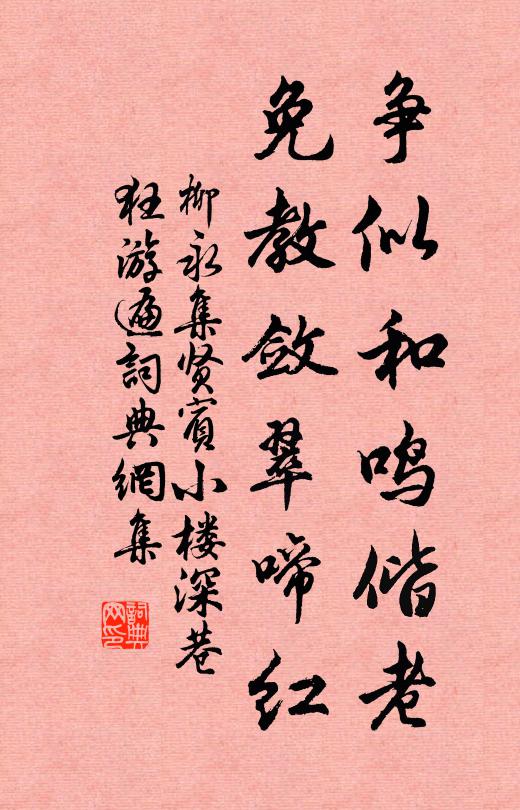 争似和鸣偕老
免教敛翠啼红
柳永集贤宾小楼深巷
狂游遍詞典網集
詞典網印